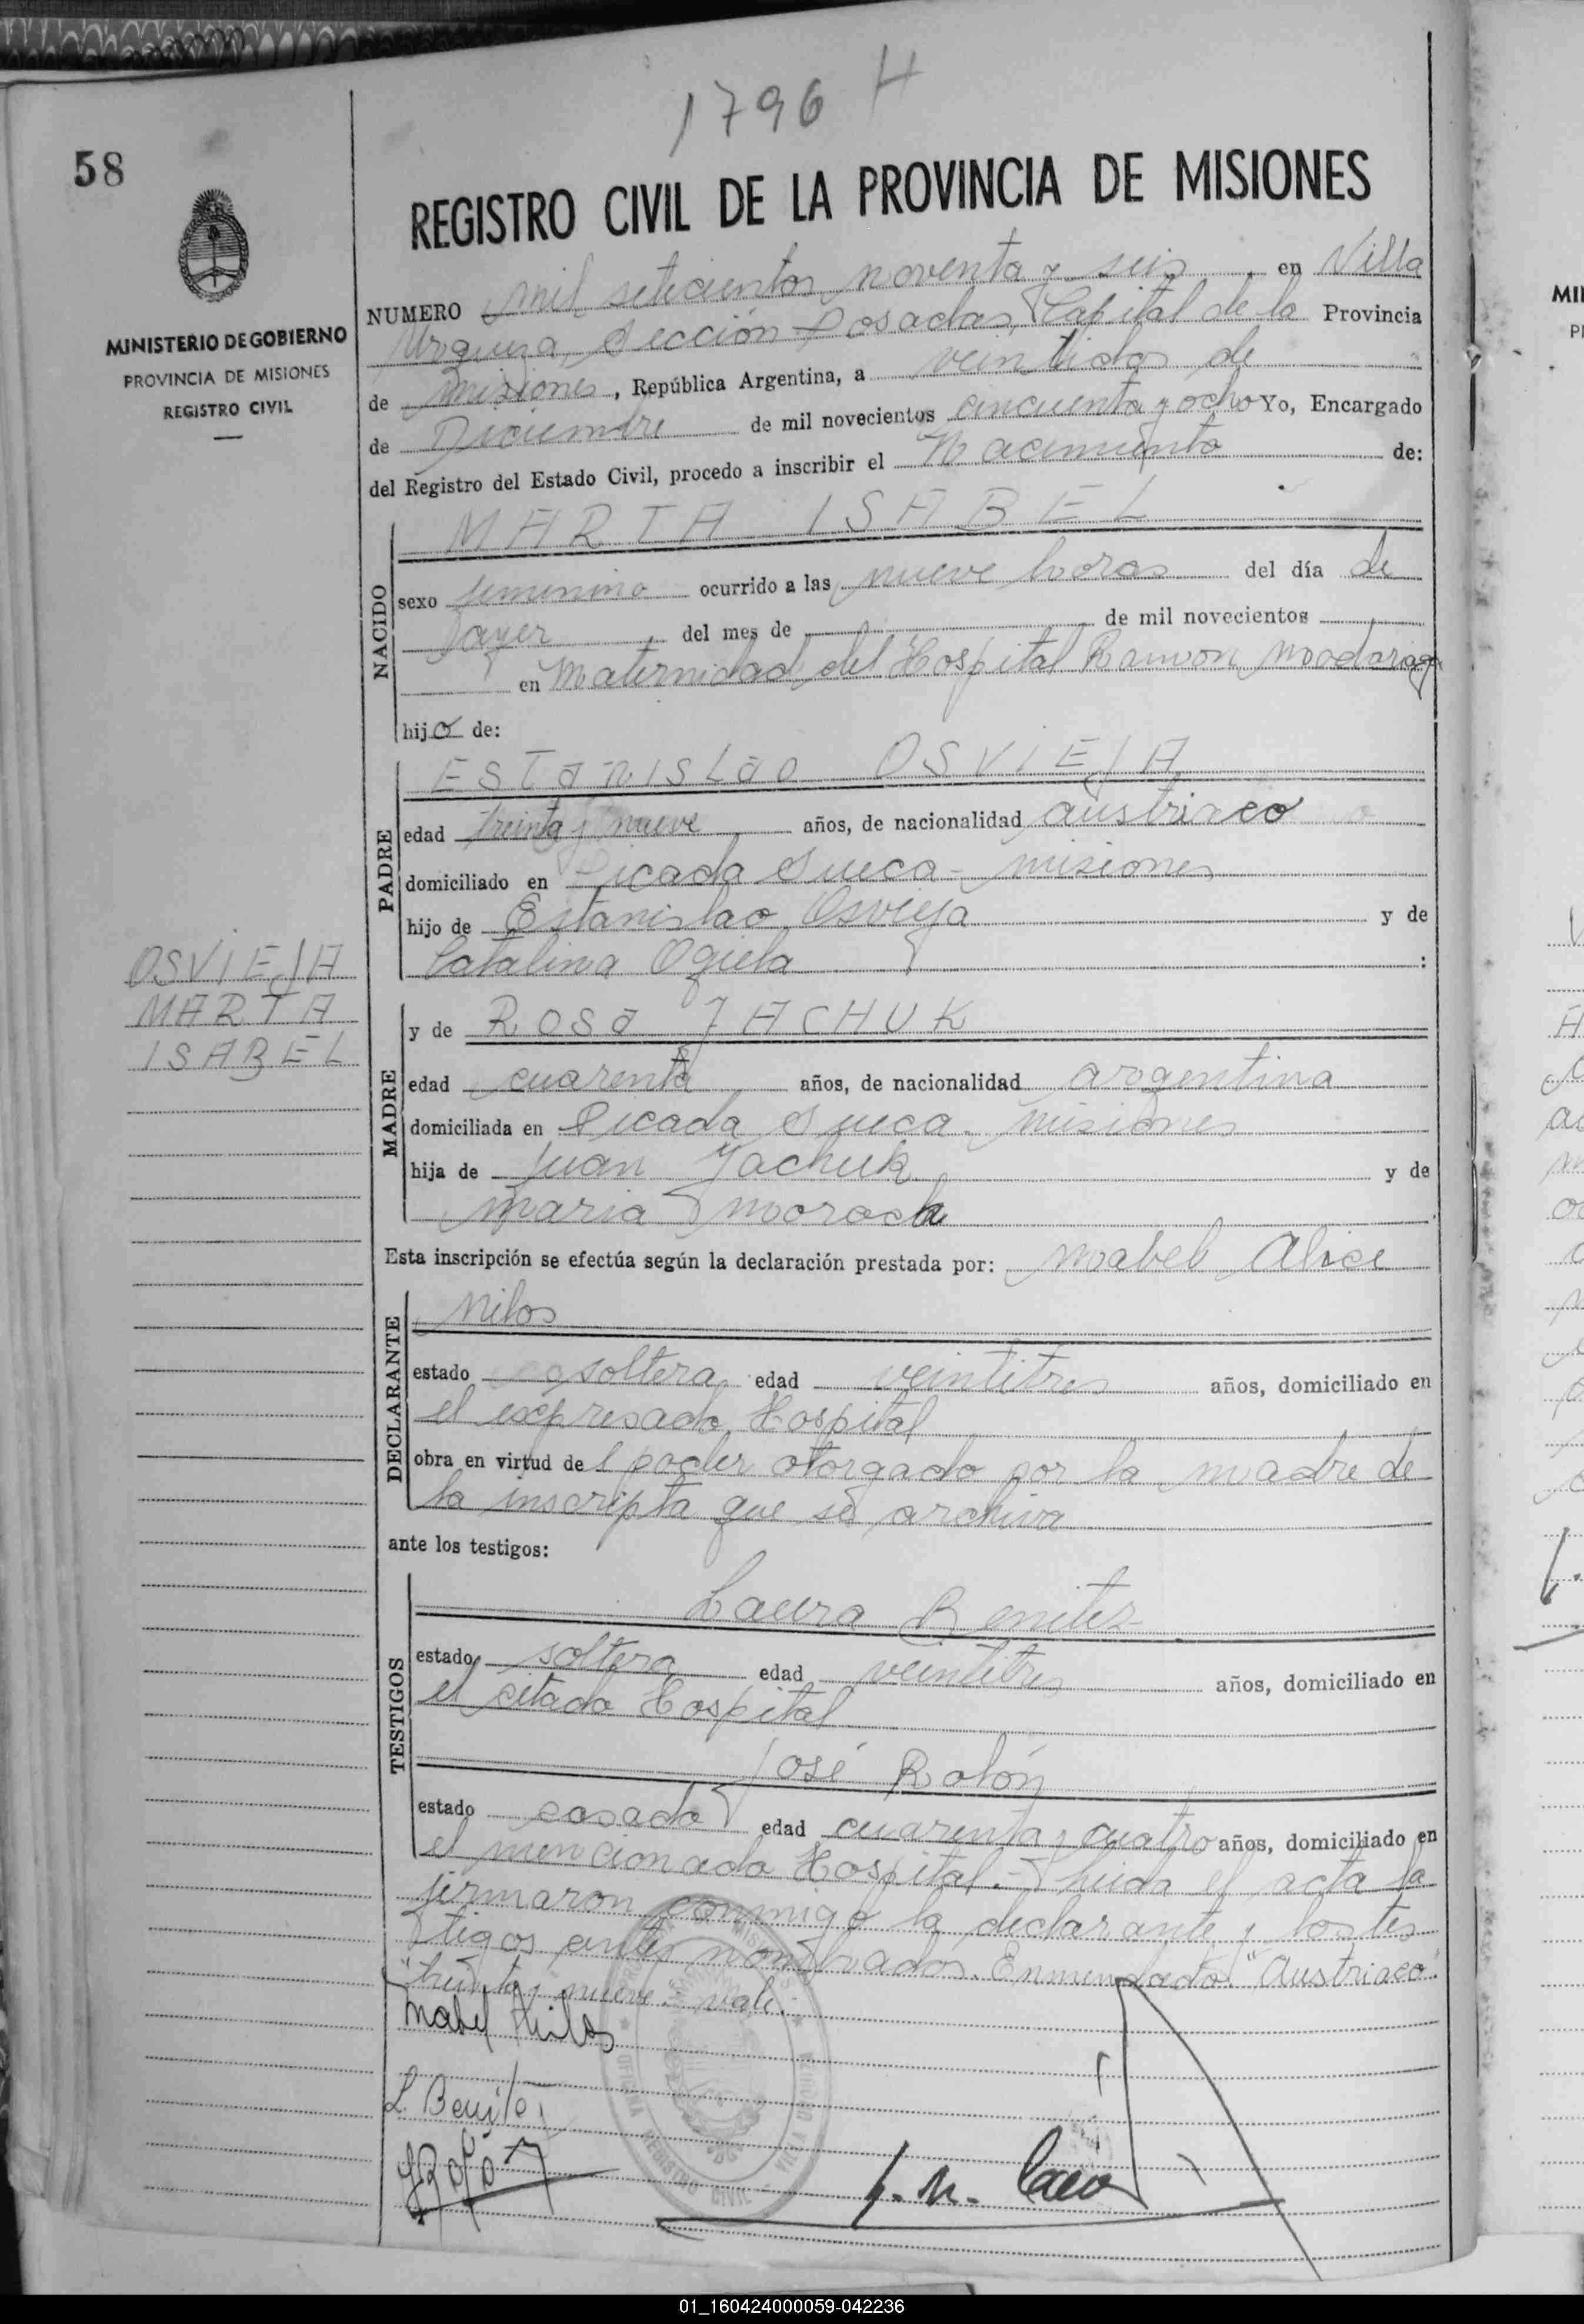 1796 H
58
REGISTRO CIVIL DE LA PROVINCIA DE MISIONES
MINISTERIO DE GOBIERNO
PROVINCIA DE MISIONES
REGISTRO CIVIL
NUMERO mil setecientos noventa y seis, en Villa
Urquiza, Sección Posadas, Capital de la Provincia
de Misiones, República Argentina, a veintidos de
de Diciembre de mil novecientos cincuenta y ocho Yo, Encargado
del Registro del Estado Civil, procedo a inscribir el Nacimiento de:
NACIDO
MARTA ISABEL
sexo femenino ocurrido a las nueve horas del día de
ayer del mes de de mil novecientos
en Maternidad del Hospital Ramon Madariaga
hija de:
PADRE
ESTANISLAO OSVIEJA
edad treinta y nueve años, de nacionalidad austriaco
domiciliado en Picada Sueca - Misiones
hijo de Estanislao Osvieja y de
Catalina Ogiela :
OSVIEJA
MARTA
ISABEL
MADRE
y de ROSA JACHUK
edad cuarenta años, de nacionalidad argentina
domiciliada en Picada Sueca - Misiones
hija de Juan Jachuk y de
Maria Morock
Esta inscripción se efectúa según la declaración prestada por: Mabel Alice
DECLARANTE
Milos
estado soltera edad veintitres años, domiciliado en
el expresado Hospital
obra en virtud del poder otorgado por la madre de
la inscripta que se archiva
ante los testigos:
TESTIGOS
Laura Benitez
estado soltera edad veintitres años, domiciliado en
el citado Hospital
José Rolón
estado casado edad cuarenta y cuatro años, domiciliado en
el mencionado Hospital.- Leida el acta la
firmaron conmigo la declarante y los tes
tigos antes nombrados. Enmendado: "Austriaco".
"treinta y nueve".- vale.
Mabel Milos
L. Benitez
J Rolon
OFICINA REGISTRO CIVIL
01_160424000059-042236